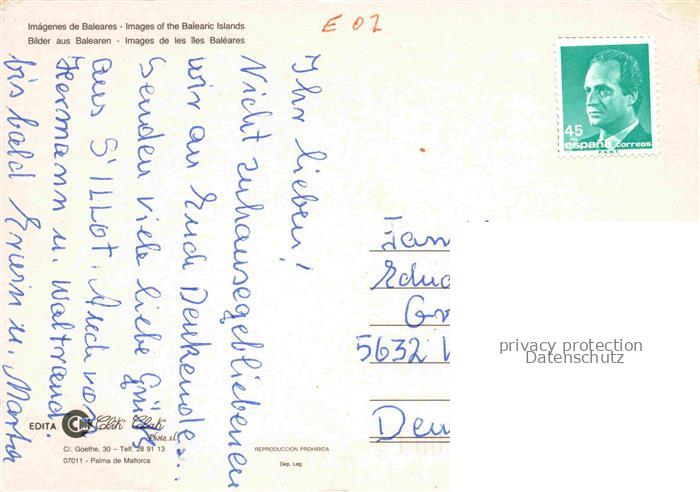 Imágenes de Baleares - Images of the Balearic Islands
Bilder aus Balearen - Images de les Îles Baléares
E 07
45
españa correos
Ihr lieben!
Nicht zuhausegebliebenen
wir an Euch Denkende...
Senden viele liebe Grüße
aus S'ILLOT. Auch von
Hermann u. Waltraud.
bis bald Erwin u. Martha
Fam
Edua
Gr
5632 W
Deu
privacy protection
Datenschutz
EDITA Clik Clak
Photo, s.l.
C/. Goethe, 30 - Telf. 28 91 13
07011 - Palma de Mallorca
REPRODUCCION PROHIBIDA
Dep. Leg.